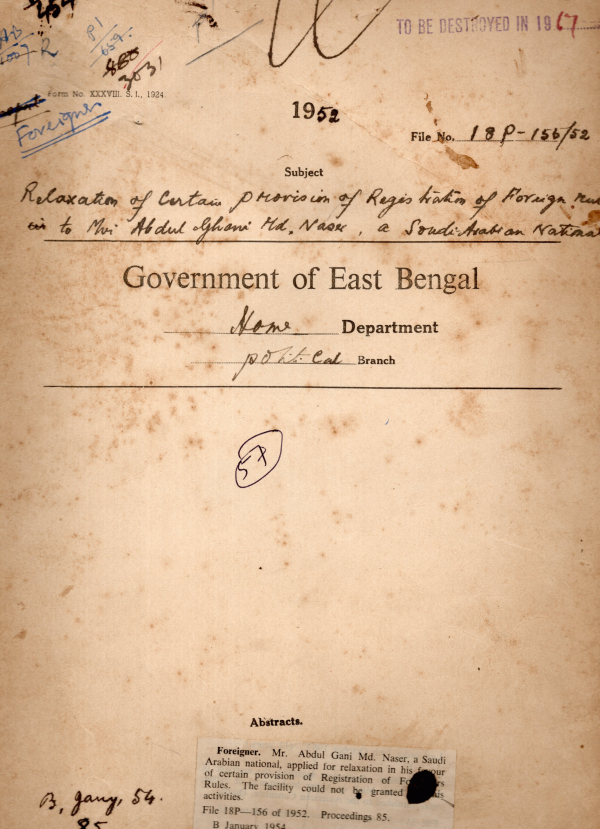 TO BE DESTROYED IN 1967
P1
659
3031
Form No. XXXVIII. S. I., 1924.
Foreigner
1952
File No. 18P-156/52
Subject
Relaxation of Certain provision of Registration of Foreign
to Mvi Abdul Ghani Md. Naser, a Saudi Arabian National
Government of East Bengal
Home Department
political Branch
Abstracts.
Foreigner. Mr. Abdul Gani Md. Naser, a Saudi
Arabian national, applied for relaxation in his
of certain provision of Registration of
Rules. The facility could not be granted
activities.
File 18P—156 of 1952. Proceedings 85.
B January 1954
B, Jany, 54.
85